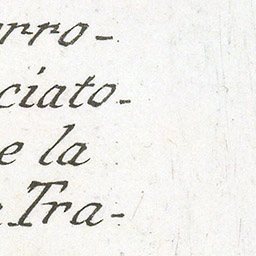 rro-
ciato-
e la
Tra-